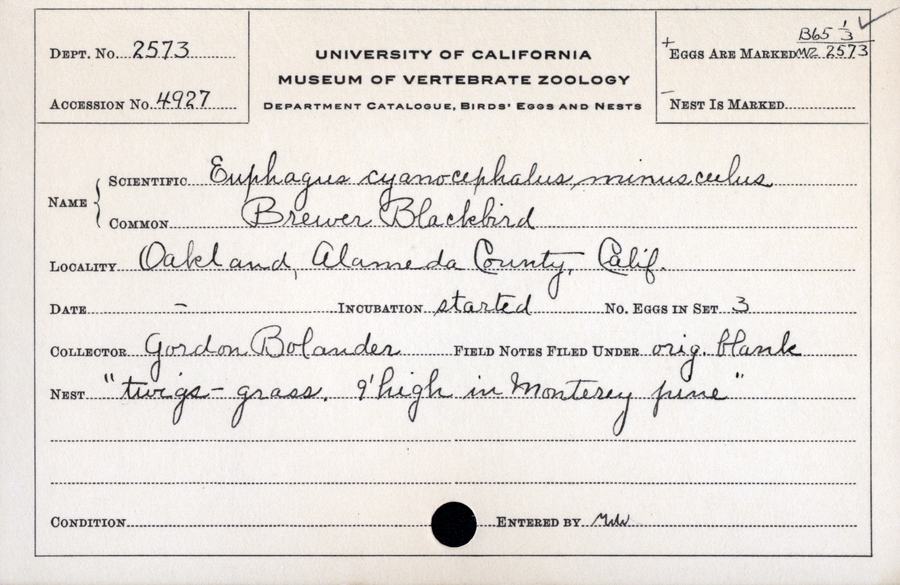 B65 1/3 ✓
Dept. No. 2573
University of California
+ Eggs Are Marked MZ 2573
Museum of Vertebrate Zoology
Accession No. 4927
Department Catalogue, Birds' Eggs and Nests
- Nest Is Marked
Name { Scientific Euphagus cyanocephalus minusculus
Common Brewer Blackbird
Locality Oakland, Alameda County, Calif.
Date - Incubation started No. Eggs in Set 3
Collector Gordon Bolander Field Notes Filed Under orig. blank
Nest "twigs - grass. 9' high in Monterey pine"
Condition Entered by